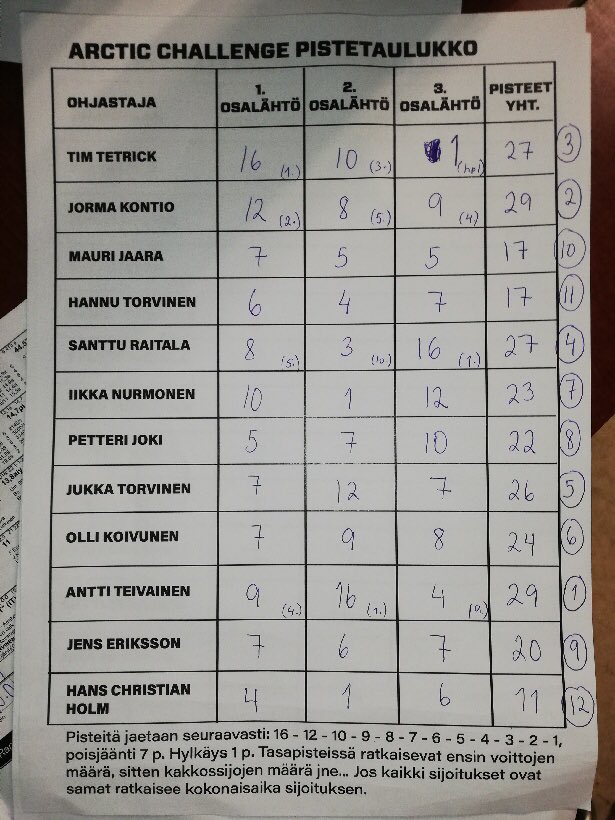 ARCTIC CHALLENGE PISTETAULUKKO
OHJASTAJA 1. OSALÄHTÖ 2. OSALÄHTÖ 3. OSALÄHTÖ PISTEET YHT.
TIM TETRICK 16 (1.) 10 (3.) 1 (hpl) 27 3
JORMA KONTIO 12 (2.) 8 (5.) 9 (4) 29 2
MAURI JAARA 7 5 5 17 10
HANNU TORVINEN 6 4 7 17 11
SANTTU RAITALA 8 (5.) 3 (10.) 16 (1.) 27 4
IIKKA NURMONEN 10 1 12 23 7
PETTERI JOKI 5 7 10 22 8
JUKKA TORVINEN 7 12 7 26 5
OLLI KOIVUNEN 7 9 8 24 6
ANTTI TEIVAINEN 9 (4.) 16 (1.) 4 (9.) 29 1
JENS ERIKSSON 7 6 7 20 9
HANS CHRISTIAN HOLM 4 1 6 11 12
Pisteitä jaetaan seuraavasti: 16 - 12 - 10 - 9 - 8 - 7 - 6 - 5 - 4 - 3 - 2 - 1,
poisjäänti 7 p. Hylkäys 1 p. Tasapisteissä ratkaisevat ensin voittojen
määrä, sitten kakkossijojen määrä jne... Jos kaikki sijoitukset ovat
samat ratkaisee kokonaisaika sijoituksen.